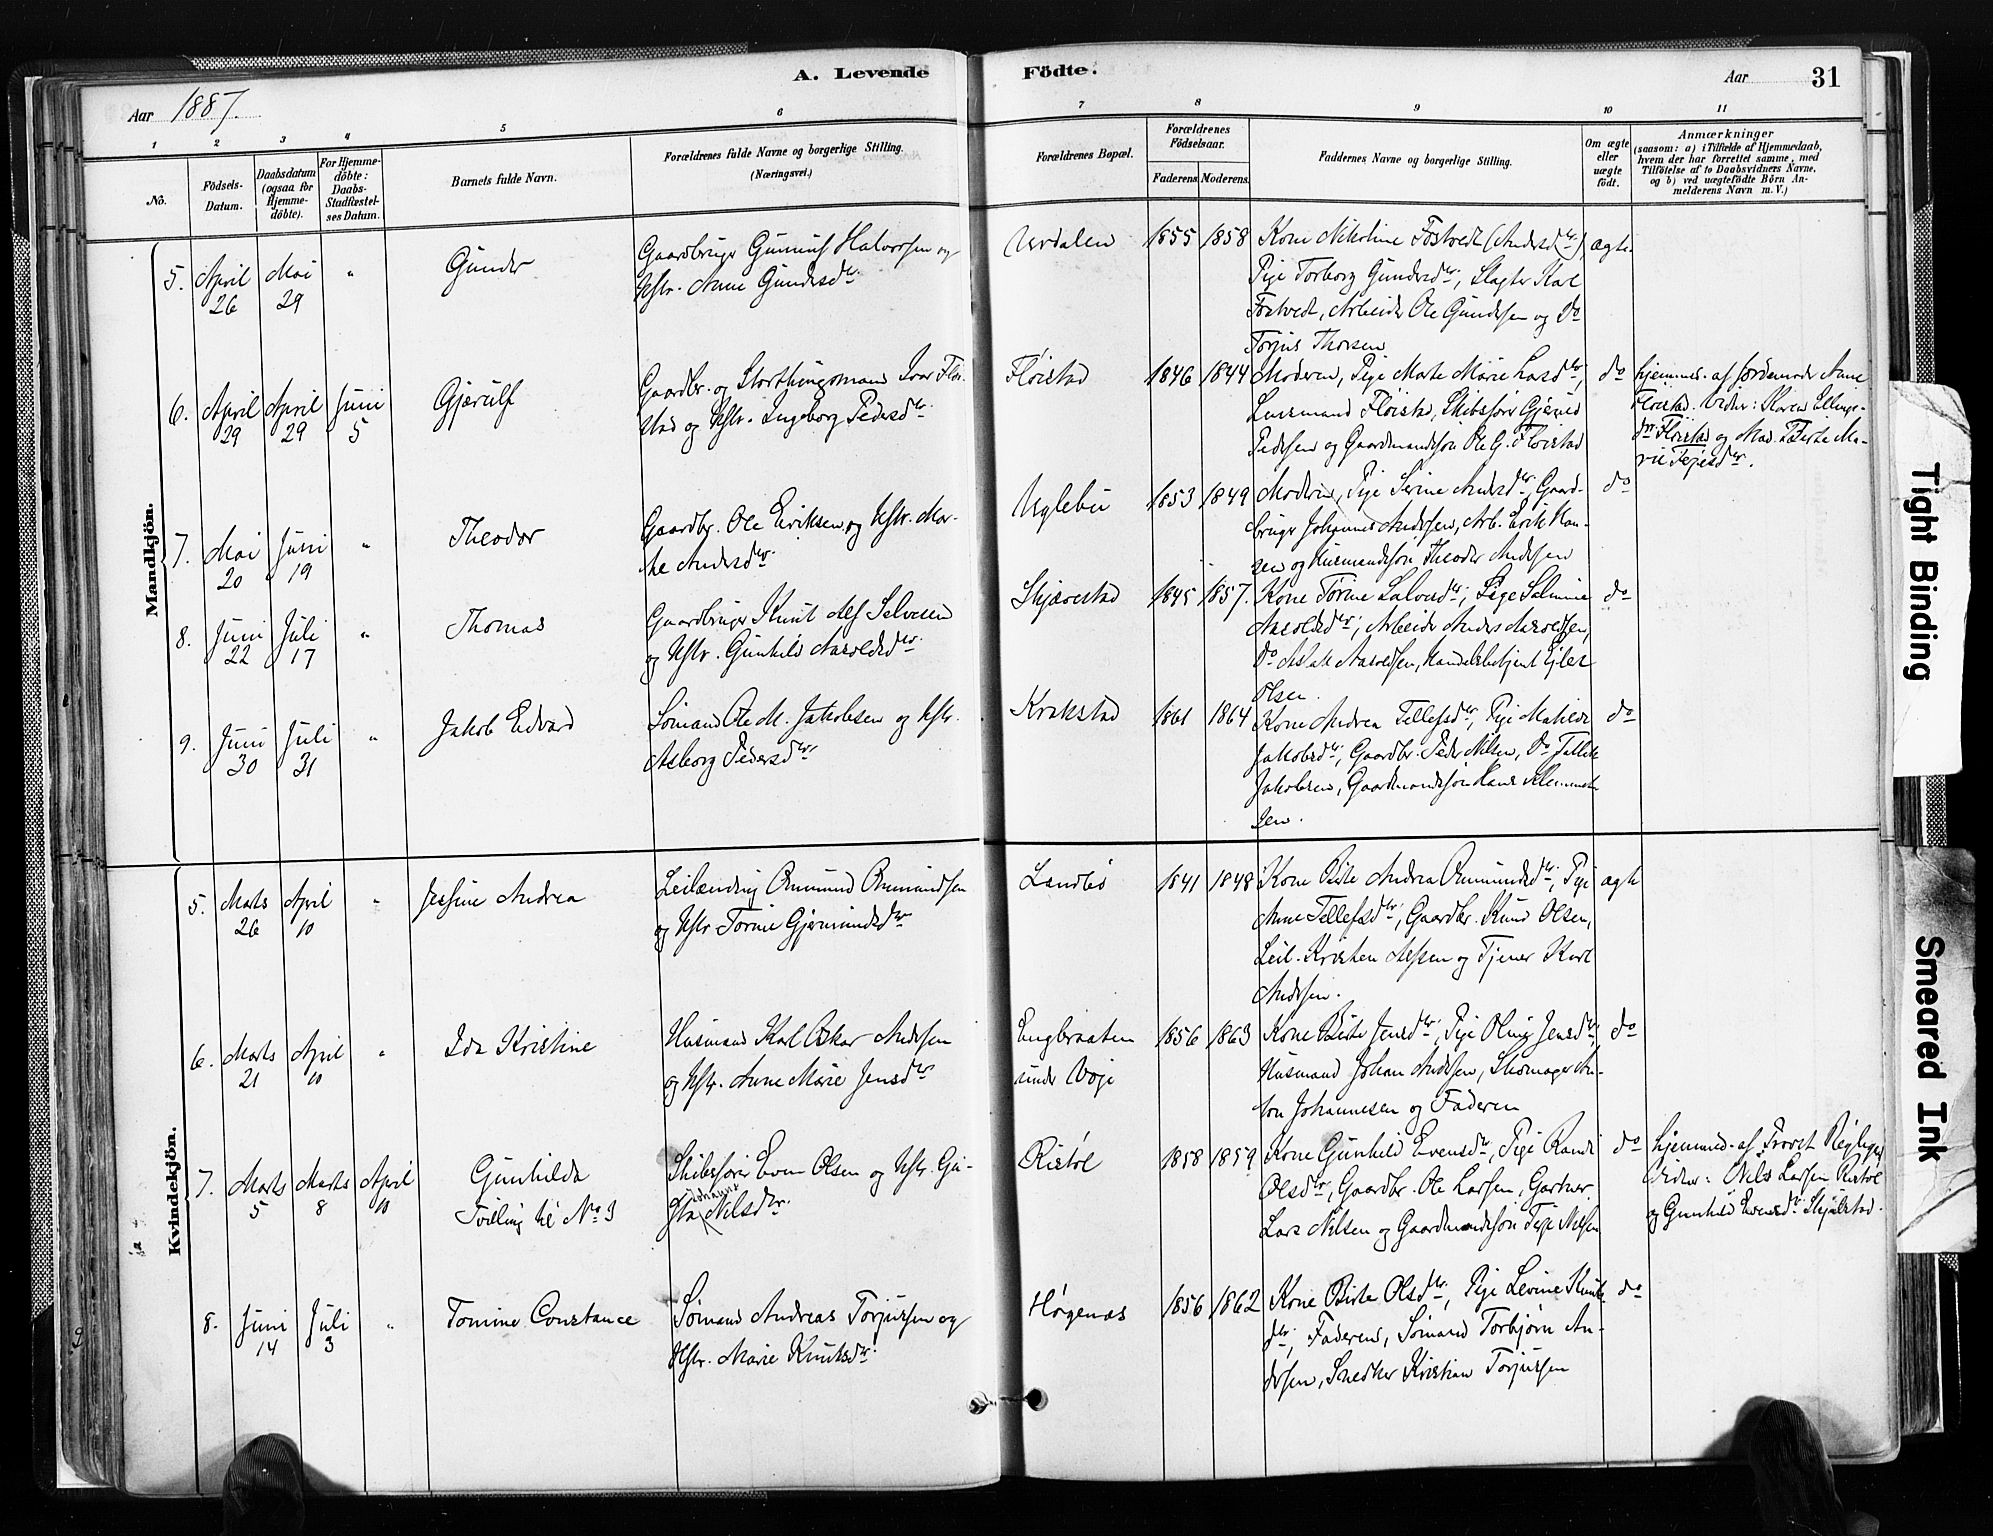 A. Levende Födte.
Aar 31
Aar 1887.
1 2 3 4 5 6 7 8 9 10 11
No.
Födsels-Datum.
Daabsdatum (ogsaa for Hjemme-döbte).
For Hjemme-döbte: Daabs-Stadfæstel-ses Datum.
Barnets fulde Navn.
Forældrenes fulde Navne og borgerlige Stilling.
(Næringsvei.)
Forældrenes Bopæl.
Forældrenes Födselsaar.
Faderens. Moderens.
Faddernes Navne og borgerlige Stilling.
Om ægte eller uægte födt.
Anmærkninger
(saasom: a) i Tilfælde af Hjemmedaab, hvem der har forrettet samme, med Tilföielse af to Daabsvidners Navne, og b) ved uægtefödte Börn An-melderens Navn m. V.)
Mandkjön.
5. April 26 Mai 29 " Gunder
Gaardbruger Gunnuf Halvorsen og
Hstr. Anne Gundersdtr.
Urdalen 1855 1858
Kone Nikoline Fostvedt (Andersdtr.), ægte.
Pige Torborg Gundersdtr., Slagter Karl
Fostvedt, Arbeider Ole Gundersen og Do
Torjus Thorsen
6. April 29 April 29 Juni 5 Gjærulf
Gaardbr. og Storthingsmand Ivar Flöi-
stad og Hstr. Ingeborg Pedersdtr.
Flöistad 1846 1844
Moderen, Pige Marte Marie Larsdtr., do
Lensmand Flöistad, Skibsförer
Pedersen og Gaardmandssön Ole G. Flöistad
hjemmed. af Jordemoder Anne
Flöistad. Vidner: Maren Ellings-
dtr Flöistad og Mad. Berte Ma-
rie Tejesdtr.
7. Mai 20 Juni 19 " Theodor
Gaardbr. Ole Eriksen og Hstr. Mar-
the Andersdtr.
Uglebu 1853 1849
Moderen, Pige Serine Andersdtr., Gaard- do
bruger Johannes Andersen, Arb. Erik Han-
sen og Husmandssön Theodor Andersen
8. Juni 22 Juli 17 " Thomas
Gaardbruger Knut Alf Salvesen
og Hstr. Gunhild Aasoldsdtr.
Skjævestad 1845 1857.
Kone Torine Salvesdtr., Pige Salmine do
Aasoldsdtr., Arbeider Anders Aasoldsen,
Do Aslak Aasoldsen, Handelsbetjent Eiler
Olsen.
9. Juni 30 Juli 31 " Jakob Edvard
Sömand Ole M. Jakobsen og Hstr.
Asborg Pedersdtr.
Krakstad 1861 1864
Kone Andrea Tellefsdtr., Pige Matilde do
Jakobsdtr., Gaardbr. Peder Nilsen, Do Tellef
Jakobsen, Gaardmandssön Hans Klemmet-
sen.
Kvindekjön.
5. Marts 26 April 10 " Jessine Andrea
Leilænding Ommund Ommundsen
og Hstr Torine Gjermundsdtr
Landbö 1841 1848
Kone Birte Andrea Ommundsdtr., Pige ægte
Anne Tellefsdtr., Gaardbr. Knud Olsen,
Leil. Kristen Alfsen og Tjener Karl
Andersen.
6. Marts 21 April 10 " Ida Kristine
Husmand Karl Oskar Andersen
og Hstr. Anne Marie Jensdtr
Engbraaten 1856 1863
under Voje
Kone Birte Jensdtr., Pige Oline Jensdtr., do
Husmand Johan Andersen, Skomager An-
ton Johannesen og Faderen
7. Marts 5 Marts 8 April 10 Gunhilda
Tvilling til No 3
Skibsförer Even Olsen og Hstr. Gu-
sta Johanne Nilsdtr.
Ristöl 1858 1859
Kone Gunhild Evensdtr, Pige Randi do
Olsdtr., Gaardbr. Ole Larsen, Gartner
Lars Nilsen og Gaardmandssön Teje Nilsen
hjemmed. af Provst
Vidner: Nils Larsen Ristöl
og Gunhild Evensdtr. Skjulstad.
8. Juni 14 Juli 3 " Tomine Constance
Sömand Andreas Torjussen og
Hstr. Marie Knutsdtr.
Högenæs 1856 1862
Kone Birte Olsdtr., Pige Levine Knuts- do
dtr., Faderen, Sömand Torbjörn An-
dersen, Snedker Kristian Torjussen
Tight Binding
Smeared Ink